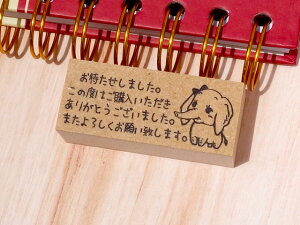 お待たせしました。
この度はご購入いただき
ありがとうございました。
またよろしくお願い致します。